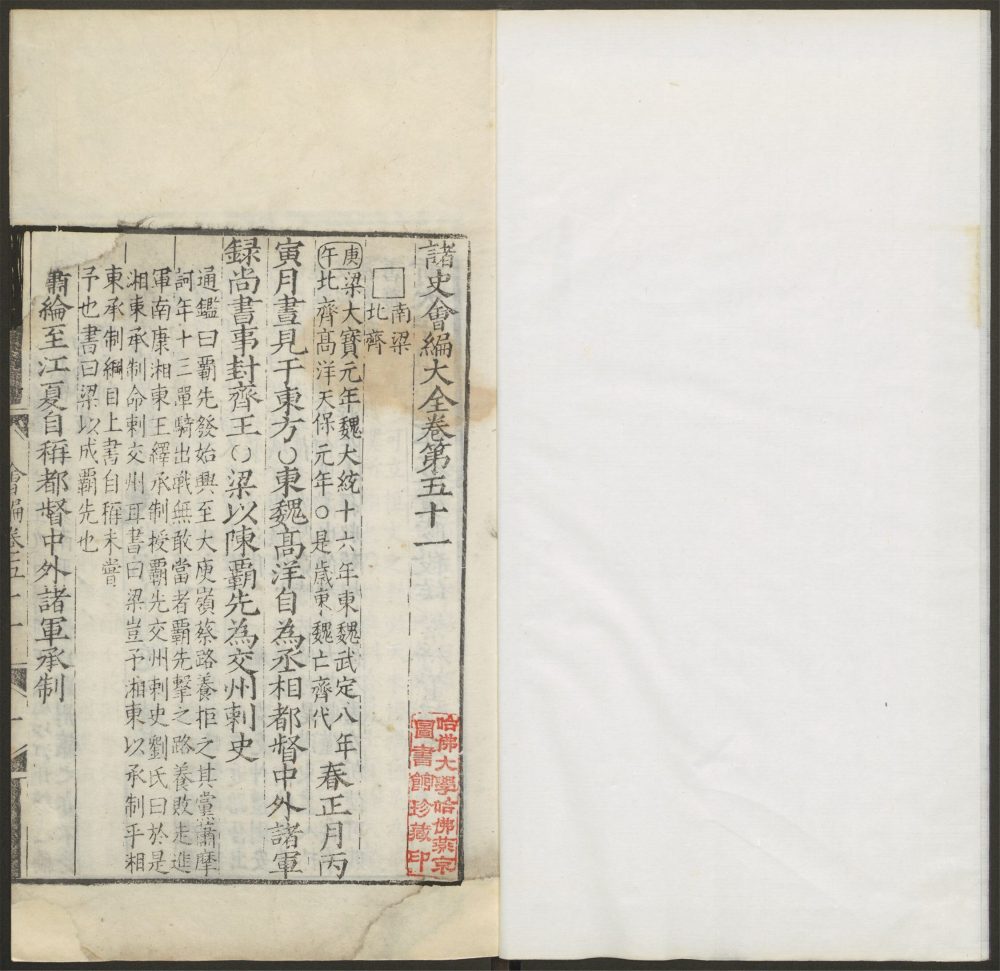 諸史會編大全卷第五十一
南梁
北齊
庚午
梁大寶元年魏大統十六年東魏武定八年
北齊高洋天保元年○是歲東魏亡齊代
春正月丙
寅月晝見于東方○東魏高洋自為丞相都督中外諸軍
録尚書事封齊王○梁以陳霸先為交州刺史
通鑑曰霸先發始興至大庾嶺蔡路養拒之其黨蕭摩
訶年十三單騎出戰無敢當者霸先擊之路養敗走進
軍南康湘東王繹承制授霸先交州刺史劉氏曰於是
湘東承制命刺交州耳書曰梁豈予湘東以承制乎湘
東承制綱目上書自稱未嘗
予也書曰梁以成霸先也
蕭綸至江夏自稱都督中外諸軍承制
會編卷五十一
一
哈佛大學哈佛燕京
圖書館珍藏印